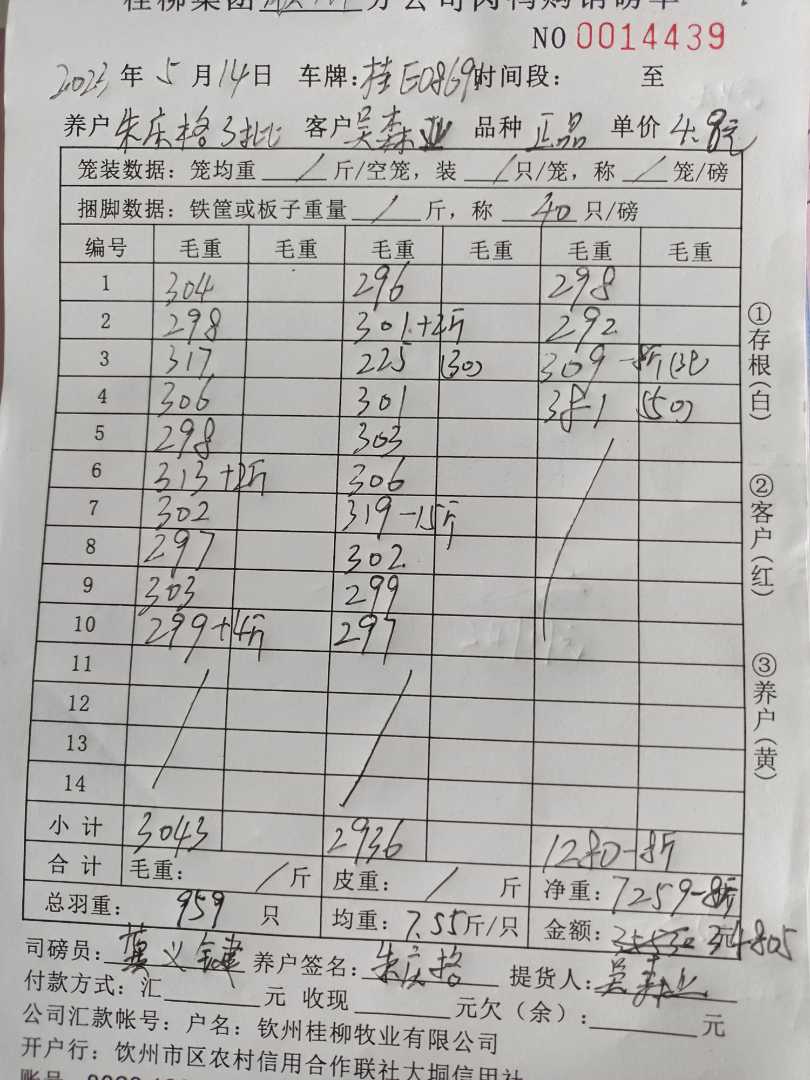 桂柳集团 分公司肉鸭购销磅单
NO 0014439
2023年5月14日 车牌:桂E0869 时间段: 至
养户 朱庆格3批 客户 吴森业 品种 正品 单价 4.8元
笼装数据:笼均重 / 斤/空笼,装 / 只/笼,称 / 笼/磅
捆脚数据:铁筐或板子重量 / 斤,称 40 只/磅
编号 毛重 毛重 毛重 毛重 毛重 毛重
1 304 296 298
2 298 301+2斤 292
3 317 225 (30) 309-8斤
4 306 301 381 (50)
5 298 303
6 313+2斤 306
7 302 319-15斤
8 297 302
9 303 299
10 299+4斤 297
11
12
13
14
小计 3043 2936 1280-8斤
合计 毛重: / 斤 皮重: / 斤 净重:7259-8斤
总羽重: 959 只 均重:7.55斤/只 金额: 34805
司磅员: 养户签名:朱庆格 提货人:吴森业
付款方式:汇 元 收现 元欠(余): 元
公司汇款帐号:户名:钦州桂柳牧业有限公司
开户行:饮州市区农村信用合作联社大垌信用社
①存根(白)
②客户(红)
③养户(黄)